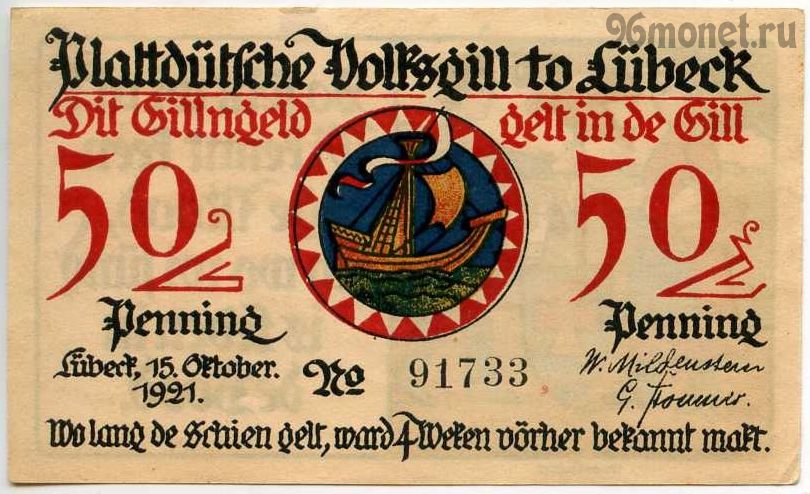 96monet.ru
Plattdütsche Volksgill to Lübeck
Dit Gillngeld gelt in de Gill
50 50
Penning Penning
Lübeck, 15. Oktober. 1921. No 91733
W. Mildenstein
G. 
Wo lang de Schien gelt, ward 4 Weken vörher bekannt makt.